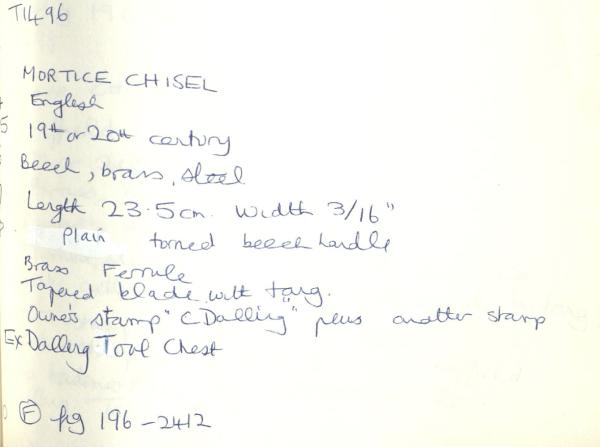 T1496
MORTICE CHISEL
English
19th or 20th century
Beech, brass, steel
Length 23.5cm. Width 3/16"
Plain turned beech handle
Brass Ferrule
Tapered blade with tang.
Owner's stamp "C Dalling" plus another stamp
Ex Dalling Tool Chest
(F) pg 196-2412